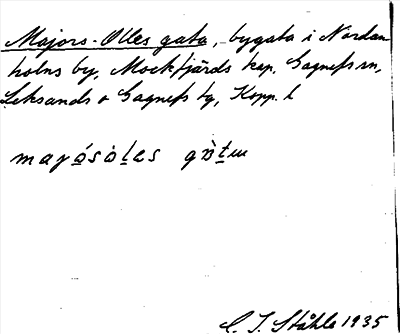 Majors-Olles gata, bygata i Nordan
holns by, Mockfjärds kap, Gagnefs sn,
Leksands o Gagnefs tg, Kopp. l
C. I. Ståhle 1935